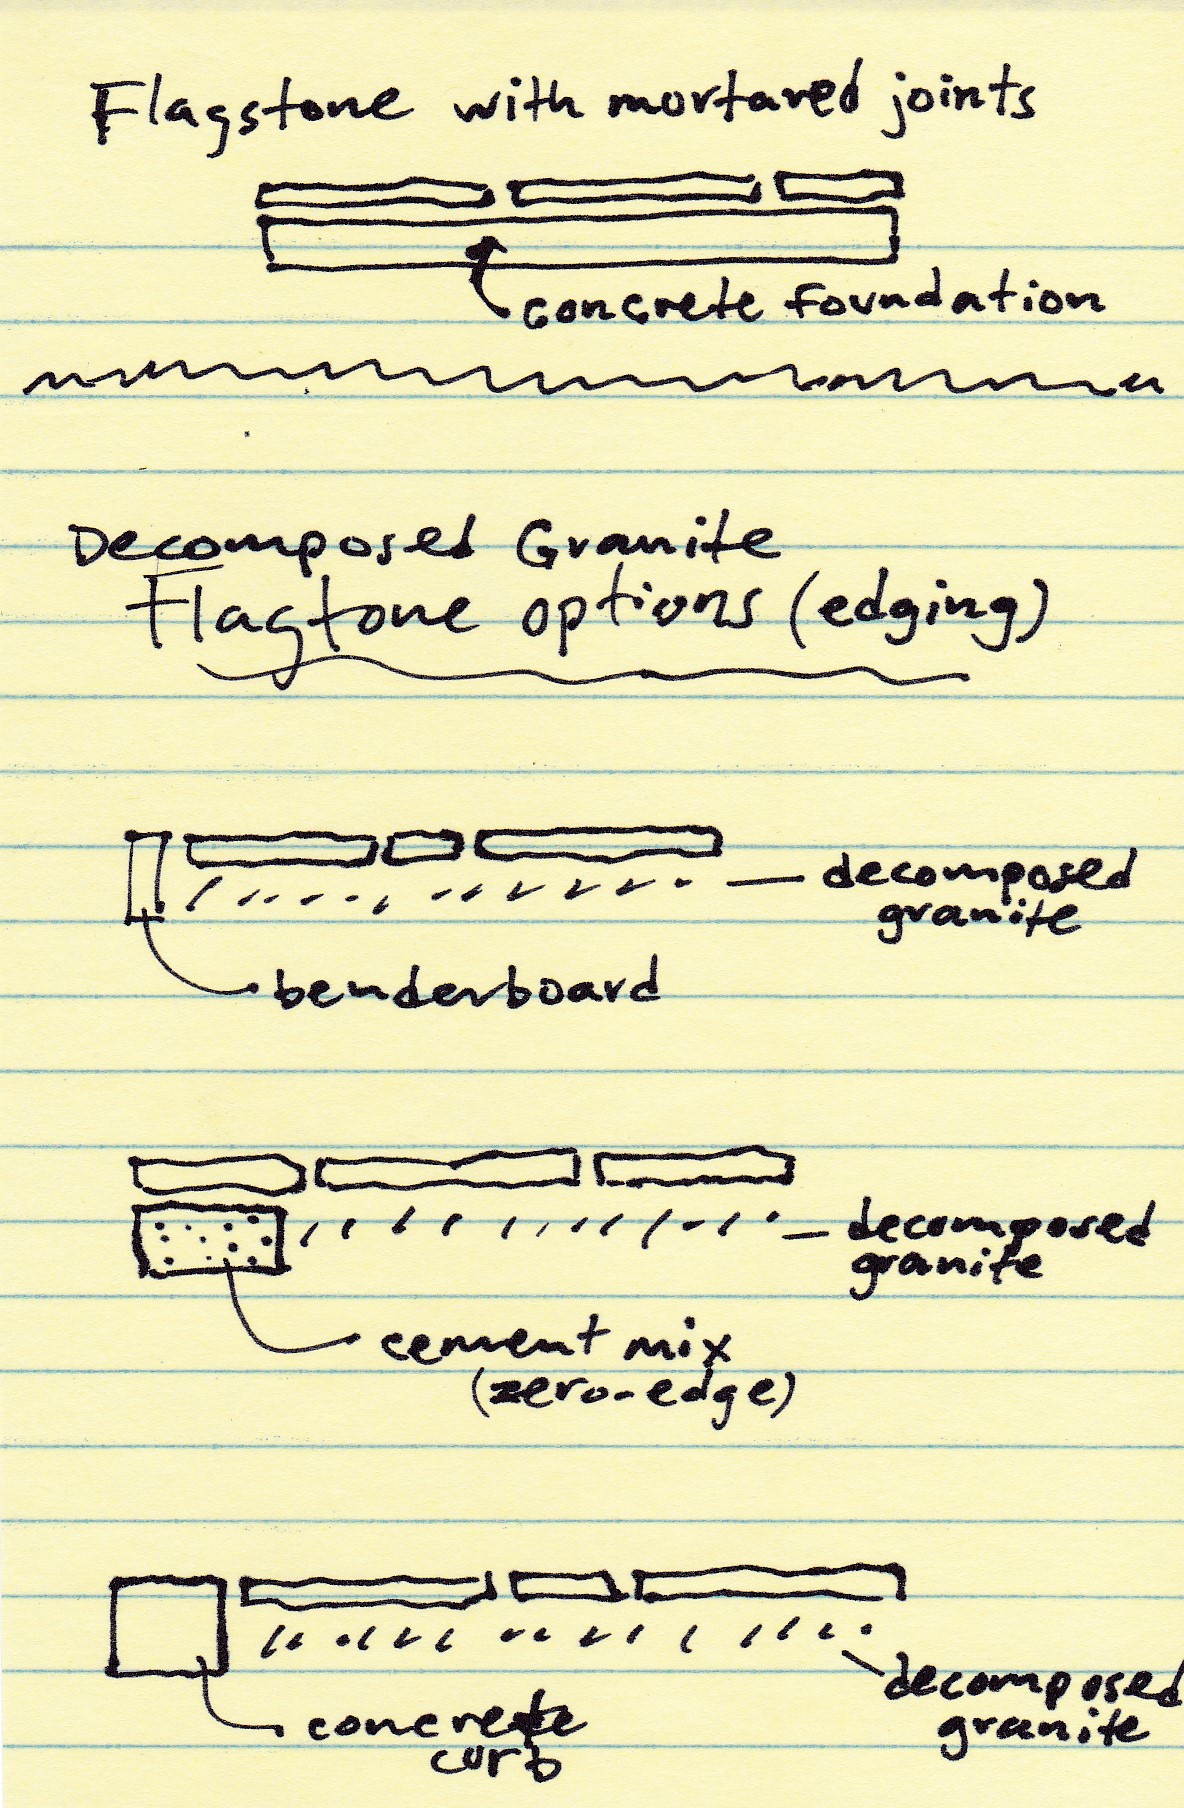 Flagstone with mortared joints
concrete foundation
Decomposed Granite
Flagtone options (edging)
decomposed
granite
benderboard
decomposed
granite
cement mix
(zero-edge)
decomposed
granite
concrete
curb